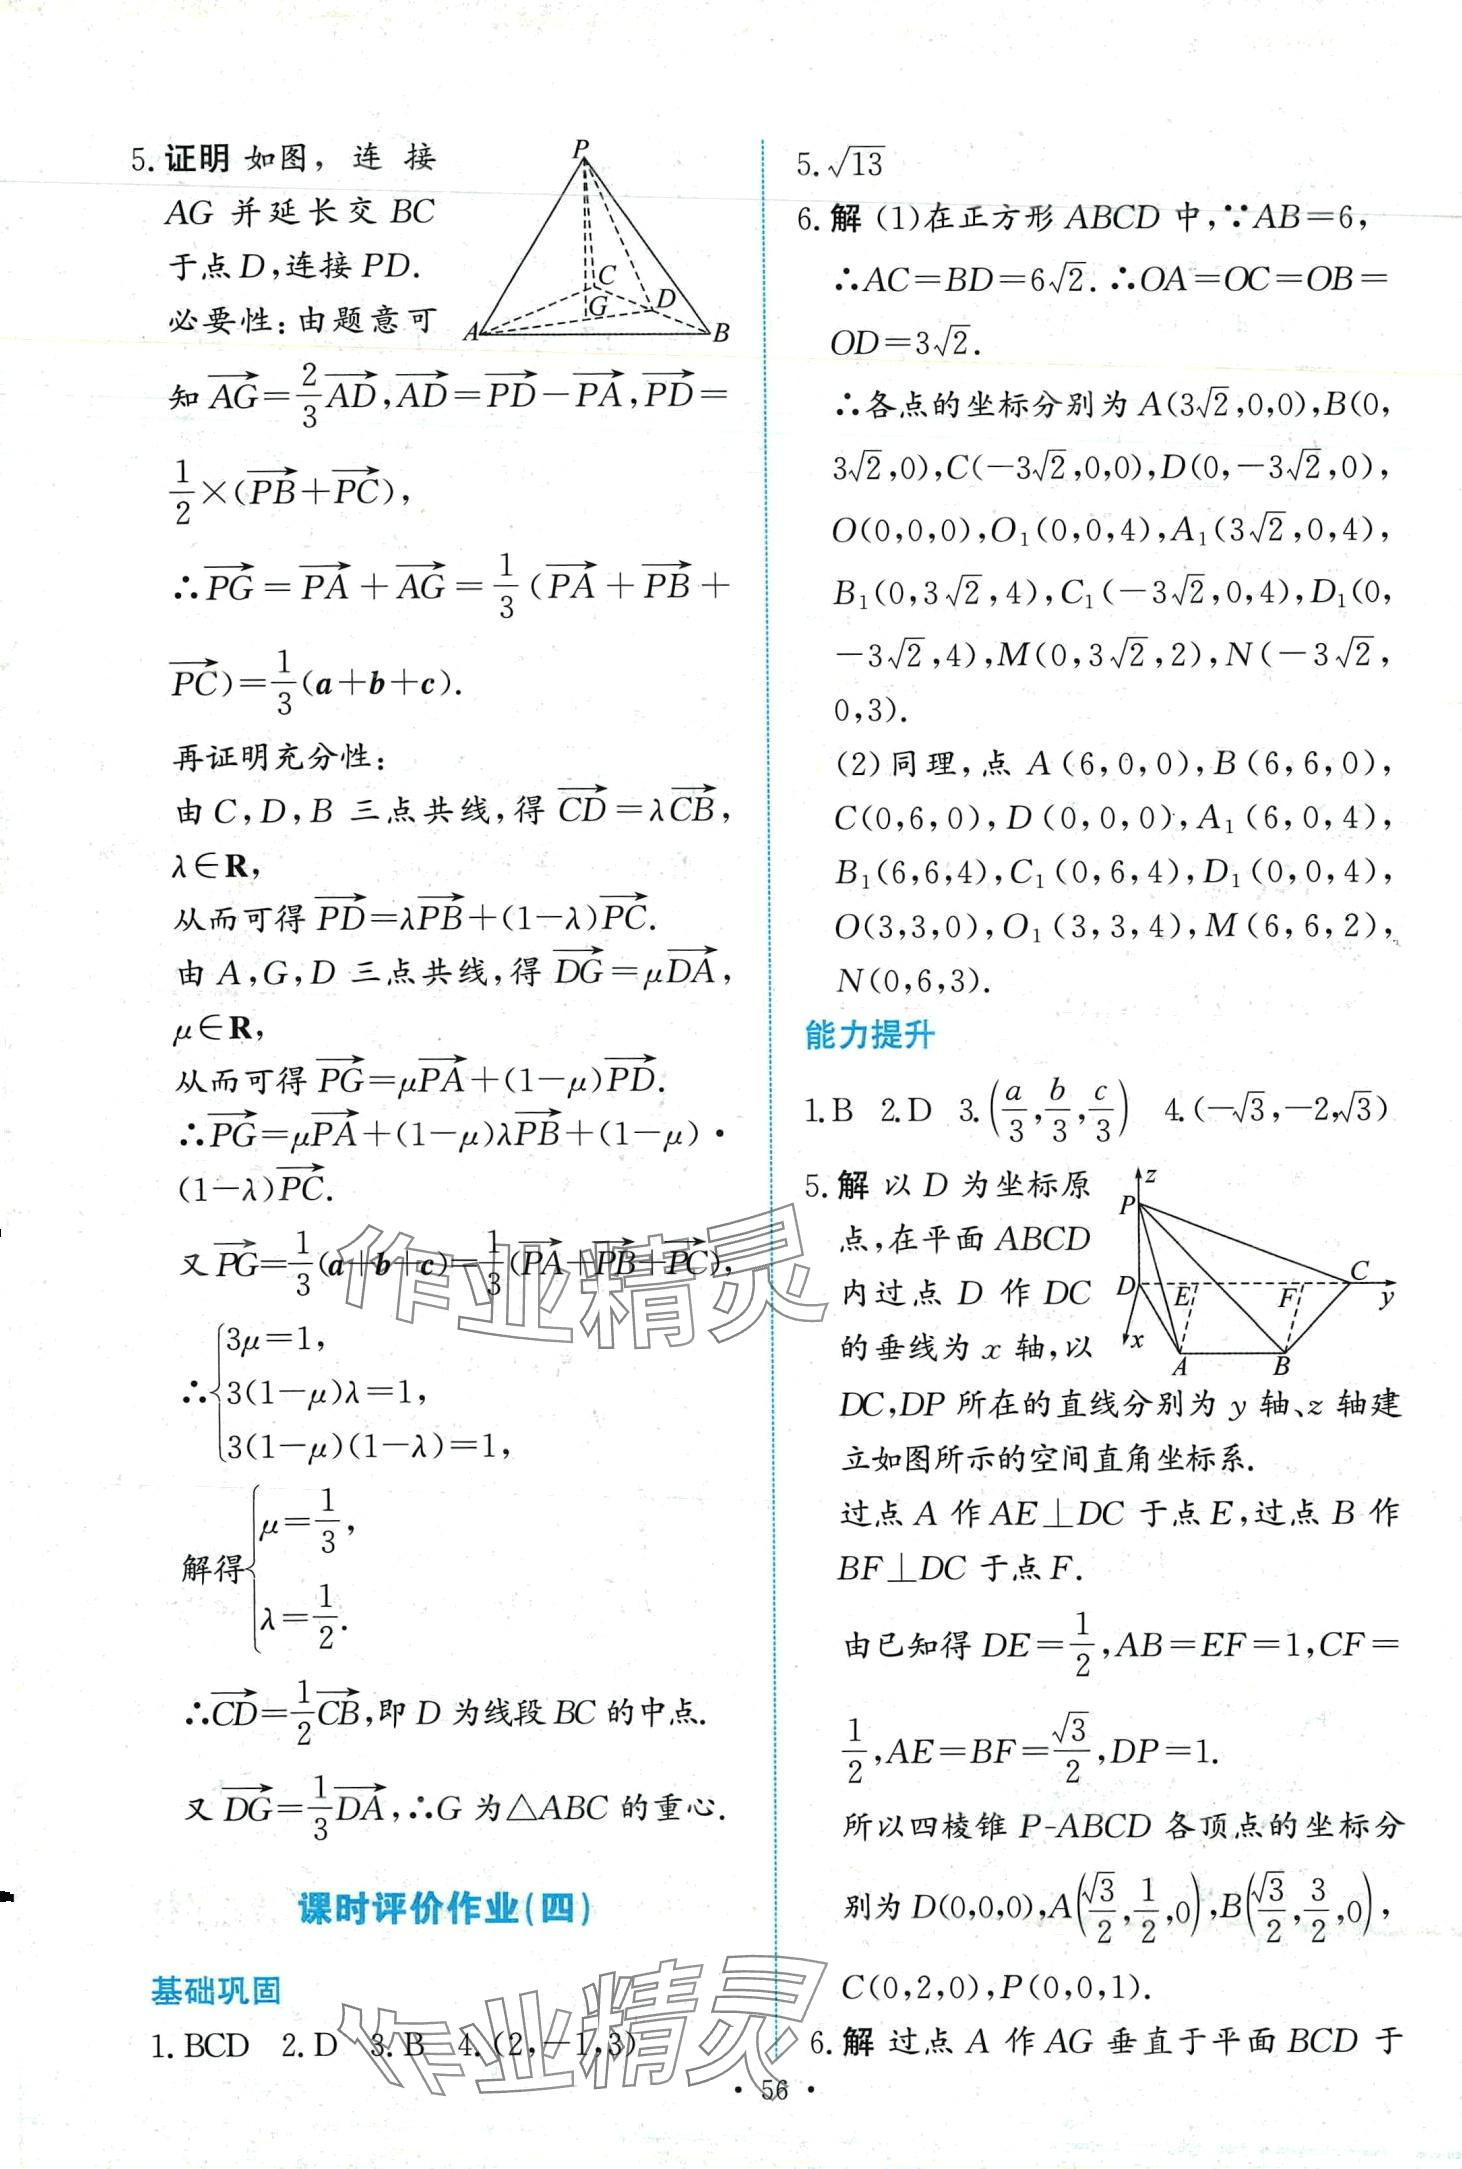 5. 证明 如图，连接
AG 并延长交 BC
于点 D,连接 PD.
必要性:由题意可
P
C
G
D
A
B
知$\overrightarrow{AG}=\frac{2}{3}\overrightarrow{AD}$,$\overrightarrow{AD}=\overrightarrow{PD}-\overrightarrow{PA}$,$\overrightarrow{PD}=$
$\frac{1}{2}×(\overrightarrow{PB}+\overrightarrow{PC})$,
∴$\overrightarrow{PG}=\overrightarrow{PA}+\overrightarrow{AG}=\frac{1}{3}(\overrightarrow{PA}+\overrightarrow{PB}+$
$\overrightarrow{PC})=\frac{1}{3}(a+b+c)$.
再证明充分性:
由 C,D,B 三点共线,得 $\overrightarrow{CD}=λ\overrightarrow{CB}$,
λ∈R,
从而可得 $\overrightarrow{PD}=λ\overrightarrow{PB}+(1-λ)\overrightarrow{PC}$.
由 A,G,D 三点共线,得 $\overrightarrow{DG}=μ\overrightarrow{DA}$,
μ∈R,
从而可得 $\overrightarrow{PG}=μ\overrightarrow{PA}+(1-μ)\overrightarrow{PD}$.
∴$\overrightarrow{PG}=μ\overrightarrow{PA}+(1-μ)λ\overrightarrow{PB}+(1-μ)·$
$(1-λ)\overrightarrow{PC}$.
又 $\overrightarrow{PG}=\frac{1}{3}(a+b+c)=\frac{1}{3}(\overrightarrow{PA}+\overrightarrow{PB}+\overrightarrow{PC})$,
作业精灵
3μ=1,
∴{3(1-μ)λ=1,
3(1-μ)(1-λ)=1,
解得{$μ=\frac{1}{3}$,
$λ=\frac{1}{2}$.
∴$\overrightarrow{CD}=\frac{1}{2}\overrightarrow{CB}$,即 D 为线段 BC 的中点.
又 $\overrightarrow{DG}=\frac{1}{3}\overrightarrow{DA}$,∴G 为△ABC 的重心.
课时评价作业(四)
基础巩固
1. BCD 2. D 3. B 4. (2,-1,3)
作业精灵
5. $\sqrt{13}$
6. 解 (1)在正方形 ABCD 中,∵AB=6,
∴AC=BD=6$\sqrt{2}$. ∴OA=OC=OB=
OD=3$\sqrt{2}$.
∴各点的坐标分别为 A(3$\sqrt{2}$,0,0),B(0,
3$\sqrt{2}$,0),C(-3$\sqrt{2}$,0,0),D(0,-3$\sqrt{2}$,0),
O(0,0,0),O₁(0,0,4),A₁(3$\sqrt{2}$,0,4),
B₁(0,3$\sqrt{2}$,4),C₁(-3$\sqrt{2}$,0,4),D₁(0,
-3$\sqrt{2}$,4),M(0,3$\sqrt{2}$,2),N(-3$\sqrt{2}$,
0,3).
(2)同理,点 A(6,0,0),B(6,6,0),
C(0,6,0),D(0,0,0),A₁(6,0,4),
B₁(6,6,4),C₁(0,6,4),D₁(0,0,4),
O(3,3,0),O₁(3,3,4),M(6,6,2),
N(0,6,3).
能力提升
1. B 2. D 3. $\left(\frac{a}{3},\frac{b}{3},\frac{c}{3}\right)$ 4. (-$\sqrt{3}$,-2,$\sqrt{3}$)
5. 解 以 D 为坐标原
点,在平面 ABCD
内过点 D 作 DC
的垂线为 x 轴,以
z
P
D
E
F
C
y
x
A
B
DC,DP 所在的直线分别为 y 轴、z 轴建
立如图所示的空间直角坐标系.
过点 A 作 AE⊥DC 于点 E,过点 B 作
BF⊥DC 于点 F.
由已知得 DE=$\frac{1}{2}$,AB=EF=1,CF=
$\frac{1}{2}$,AE=BF=$\frac{\sqrt{3}}{2}$,DP=1.
所以四棱锥 P-ABCD 各顶点的坐标分
别为 D(0,0,0),A$\left(\frac{\sqrt{3}}{2},\frac{1}{2},0\right)$,B$\left(\frac{\sqrt{3}}{2},\frac{3}{2},0\right)$,
C(0,2,0),P(0,0,1).
6. 解 过点 A 作 AG 垂直于平面 BCD 于
· 56 ·